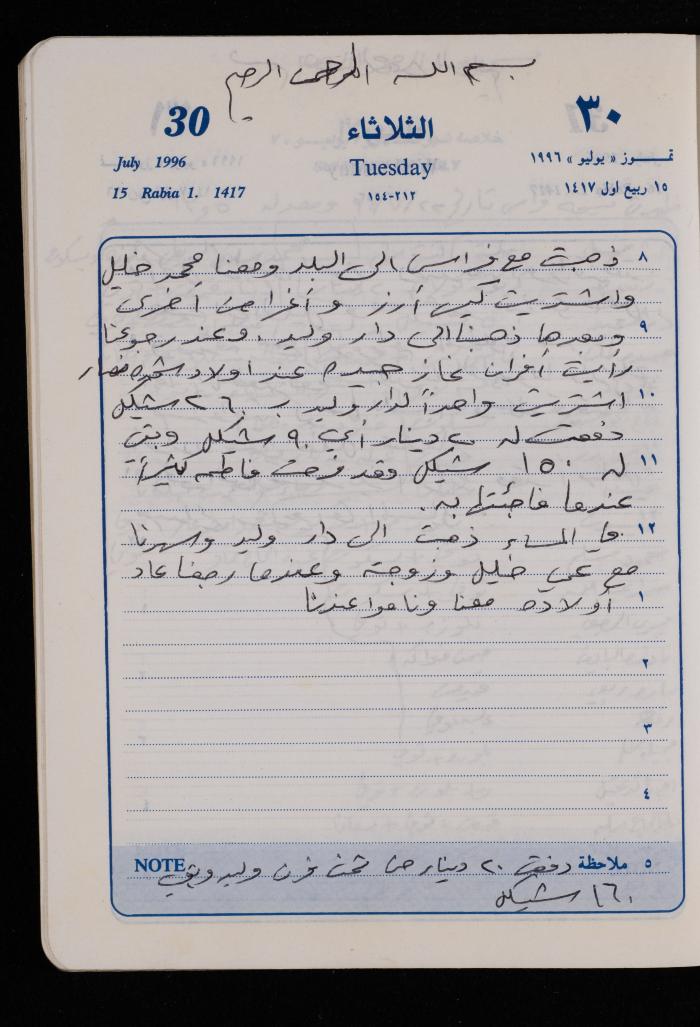 بسم الله الرحمن الرحيم
30
الثلاثاء
٣٠
July 1996
Tuesday
تمـــوز « يوليو » ١٩٩٦
15 Rabia 1. 1417
٢١٢-١٥٤
١٥ ربيع اول ١٤١٧
٨ ذهبت مع فراس الى البلد ومعنا محمد خليل
واشتريت كيس أرز وأغراض أخرى
٩ وبعدها ذهبنا الى دار وليد، وعند رجوعنا
رأيت أفران غاز جيده عند اولاد
١٠ اشتريت واحداً لدار وليد ب ٢٦٠ شيكل
دفعت له ٢٠ دينار أي ٩٠ شيكل وبقي
١١ له ١٥٠ شيكل وقد فرحت فاطمه كثيراً
عندما فاجئتها به.
١٢ في المساء ذهبت الى دار وليد وسهرنا
مع علي خليل وزوجته وعندما رجعنا عاد
١ أولاده معنا وناموا عندنا
٢
٣
٤
٥ ملاحظة دفعت ٢٠ دينار من ثمن فرن وليد وبقي NOTE
١٦٠ شيكل